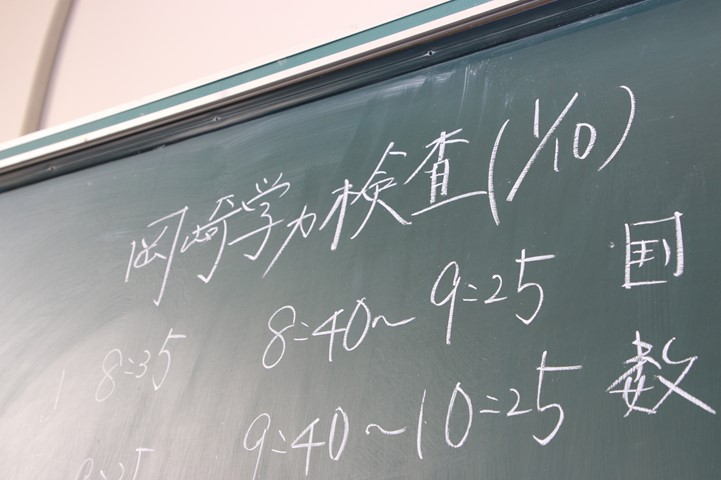 岡崎学力検査(1/10)
8:35 8:40~9:25 国
9:40~10:25 数